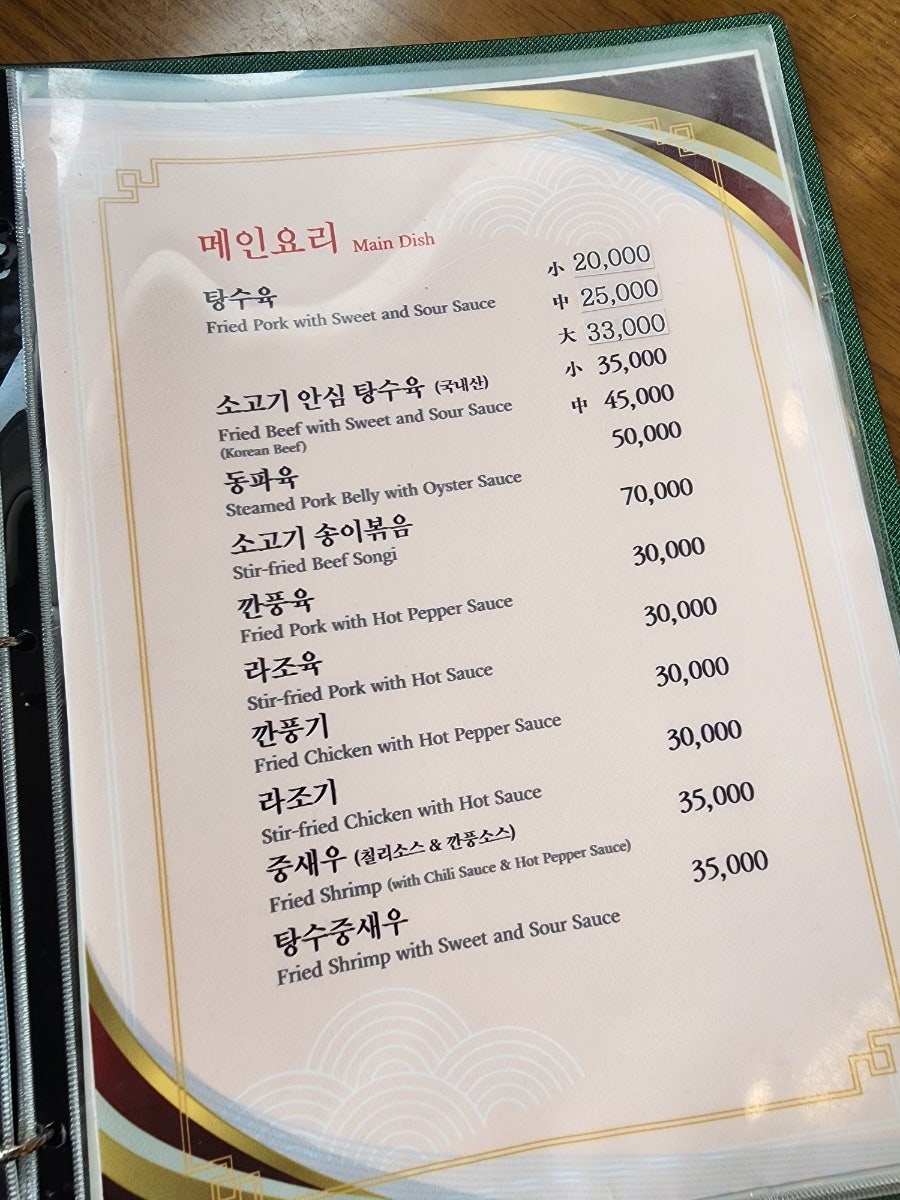 메인요리 Main Dish
탕수육 小 20,000
Fried Pork with Sweet and Sour Sauce 中 25,000
大 33,000
소고기 안심 탕수육 (국내산) 小 35,000
Fried Beef with Sweet and Sour Sauce 中 45,000
(Korean Beef)
동파육 50,000
Steamed Pork Belly with Oyster Sauce
소고기 송이볶음 70,000
Stir-fried Beef Songi
깐풍육 30,000
Fried Pork with Hot Pepper Sauce
라조육 30,000
Stir-fried Pork with Hot Sauce
깐풍기 30,000
Fried Chicken with Hot Pepper Sauce
라조기 30,000
Stir-fried Chicken with Hot Sauce
중새우 (칠리소스 & 깐풍소스) 35,000
Fried Shrimp (with Chili Sauce & Hot Pepper Sauce)
탕수중새우 35,000
Fried Shrimp with Sweet and Sour Sauce